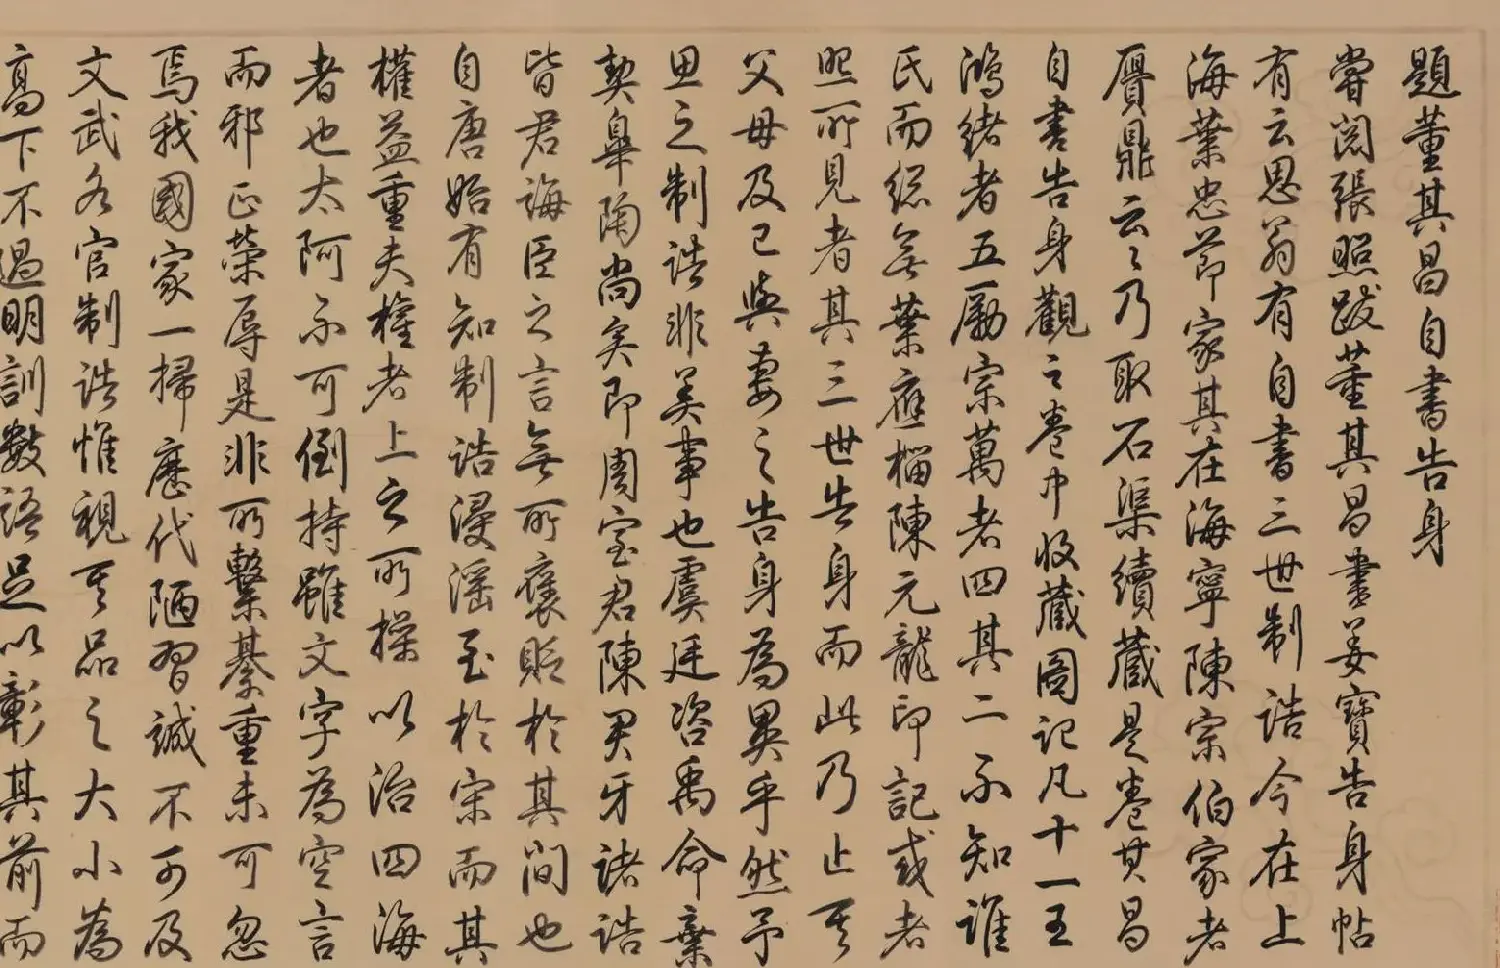 題董其昌自書告身
嘗閱張照跋董其昌書姜寶告身帖
有云思翁有自書三世制誥今在上
海葉忠節家其在海寧陳宗伯家者
贋鼎云云乃取石渠續藏是卷其昌
自書告身觀之卷中收藏圖記凡十一王
鴻緒者五勵宗萬者四其二不知誰
氏而總無葉應榴陳元龍印記或者
照所見者其三世告身而此乃止其
父母及己與妻之告身為異乎然予
思之制誥非美事也虞廷咨禹命棄
契臯陶尚矣即周室君陳君牙諸誥
皆君誨臣之言無所褒貶於其間也
自唐始有知制誥浸淫至於宋而其
權益重夫權者上之所操以治四海
者也太阿不可倒持雖文字為空言
而邪正榮辱是非所繫綦重未可忽
焉我國家一掃歷代陋習誠不可及
文武各官制誥惟視其品之大小為
高下不過明訓數語足以彰其前而